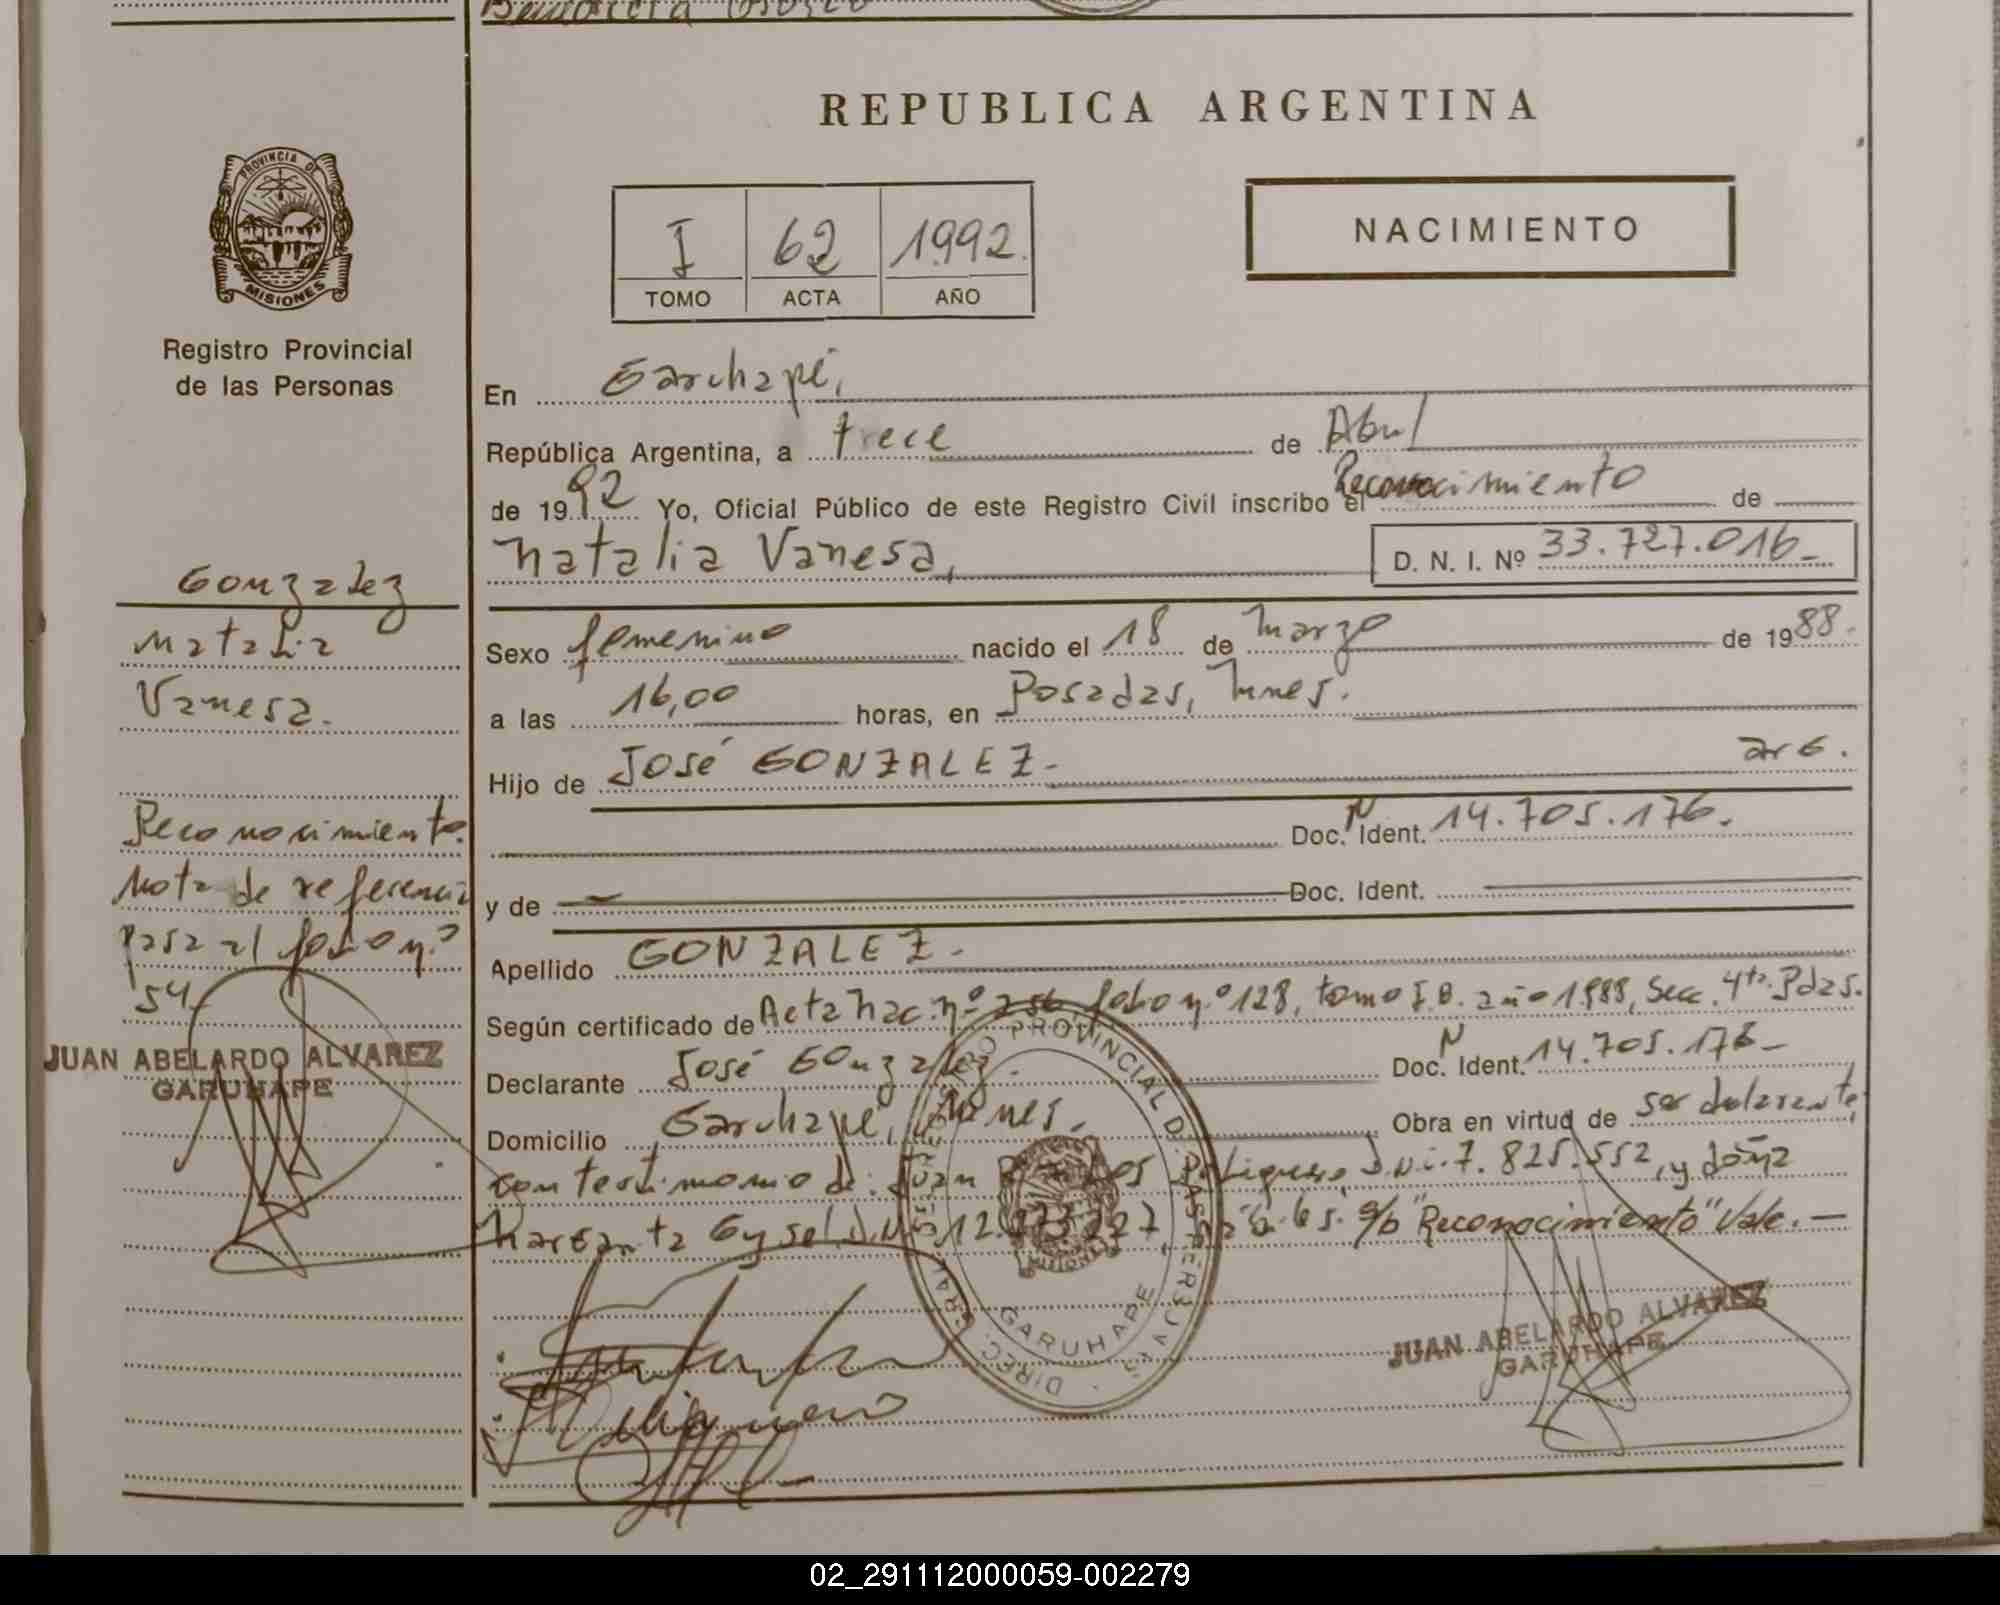 REPUBLICA ARGENTINA
PROVINCIA DE
MISIONES
Registro Provincial
de las Personas
I 62 1992.
TOMO ACTA AÑO
NACIMIENTO
En Garuhapé,
República Argentina, a trece de Abril
de 1992 Yo, Oficial Público de este Registro Civil inscribo el Reconocimiento de
Natalia Vanesa, D. N. I. Nº 33.727.016_
Sexo femenino nacido el 18 de Marzo de 1988.
a las 16,00 horas, en Posadas, Mnes.
Hijo de José GONZALEZ- arg.
Doc. N Ident. 14.705.176.
y de Doc. Ident.
Apellido GONZALEZ-
Según certificado de Acta Nac. nº 256, folio nº 128, tomo I.B. año 1988, Secc. 4ta. Pdas.
Declarante José Gonzalez. Doc. N Ident. 14.705.176-
Domicilio Garuhapé, Mnes. Obra en virtud de ser declarante,
con testimonio de: Juan D.n.i. 7.825.552, y doña
Margarita s/b "Reconocimiento" Vale. —
Gonzalez
Natalia
Vanesa.
Reconocimiento.
Nota de referencia
pasa al folio nº
54.
JUAN ABELARDO ALVAREZ
GARUHAPE
REGISTRO PROVINCIAL DE LAS PERSONAS
DIREC. GRAL.
MISIONES
GARUHAPE
JUAN ABELARDO ALVAREZ
GARUHAPE
02_291112000059-002279